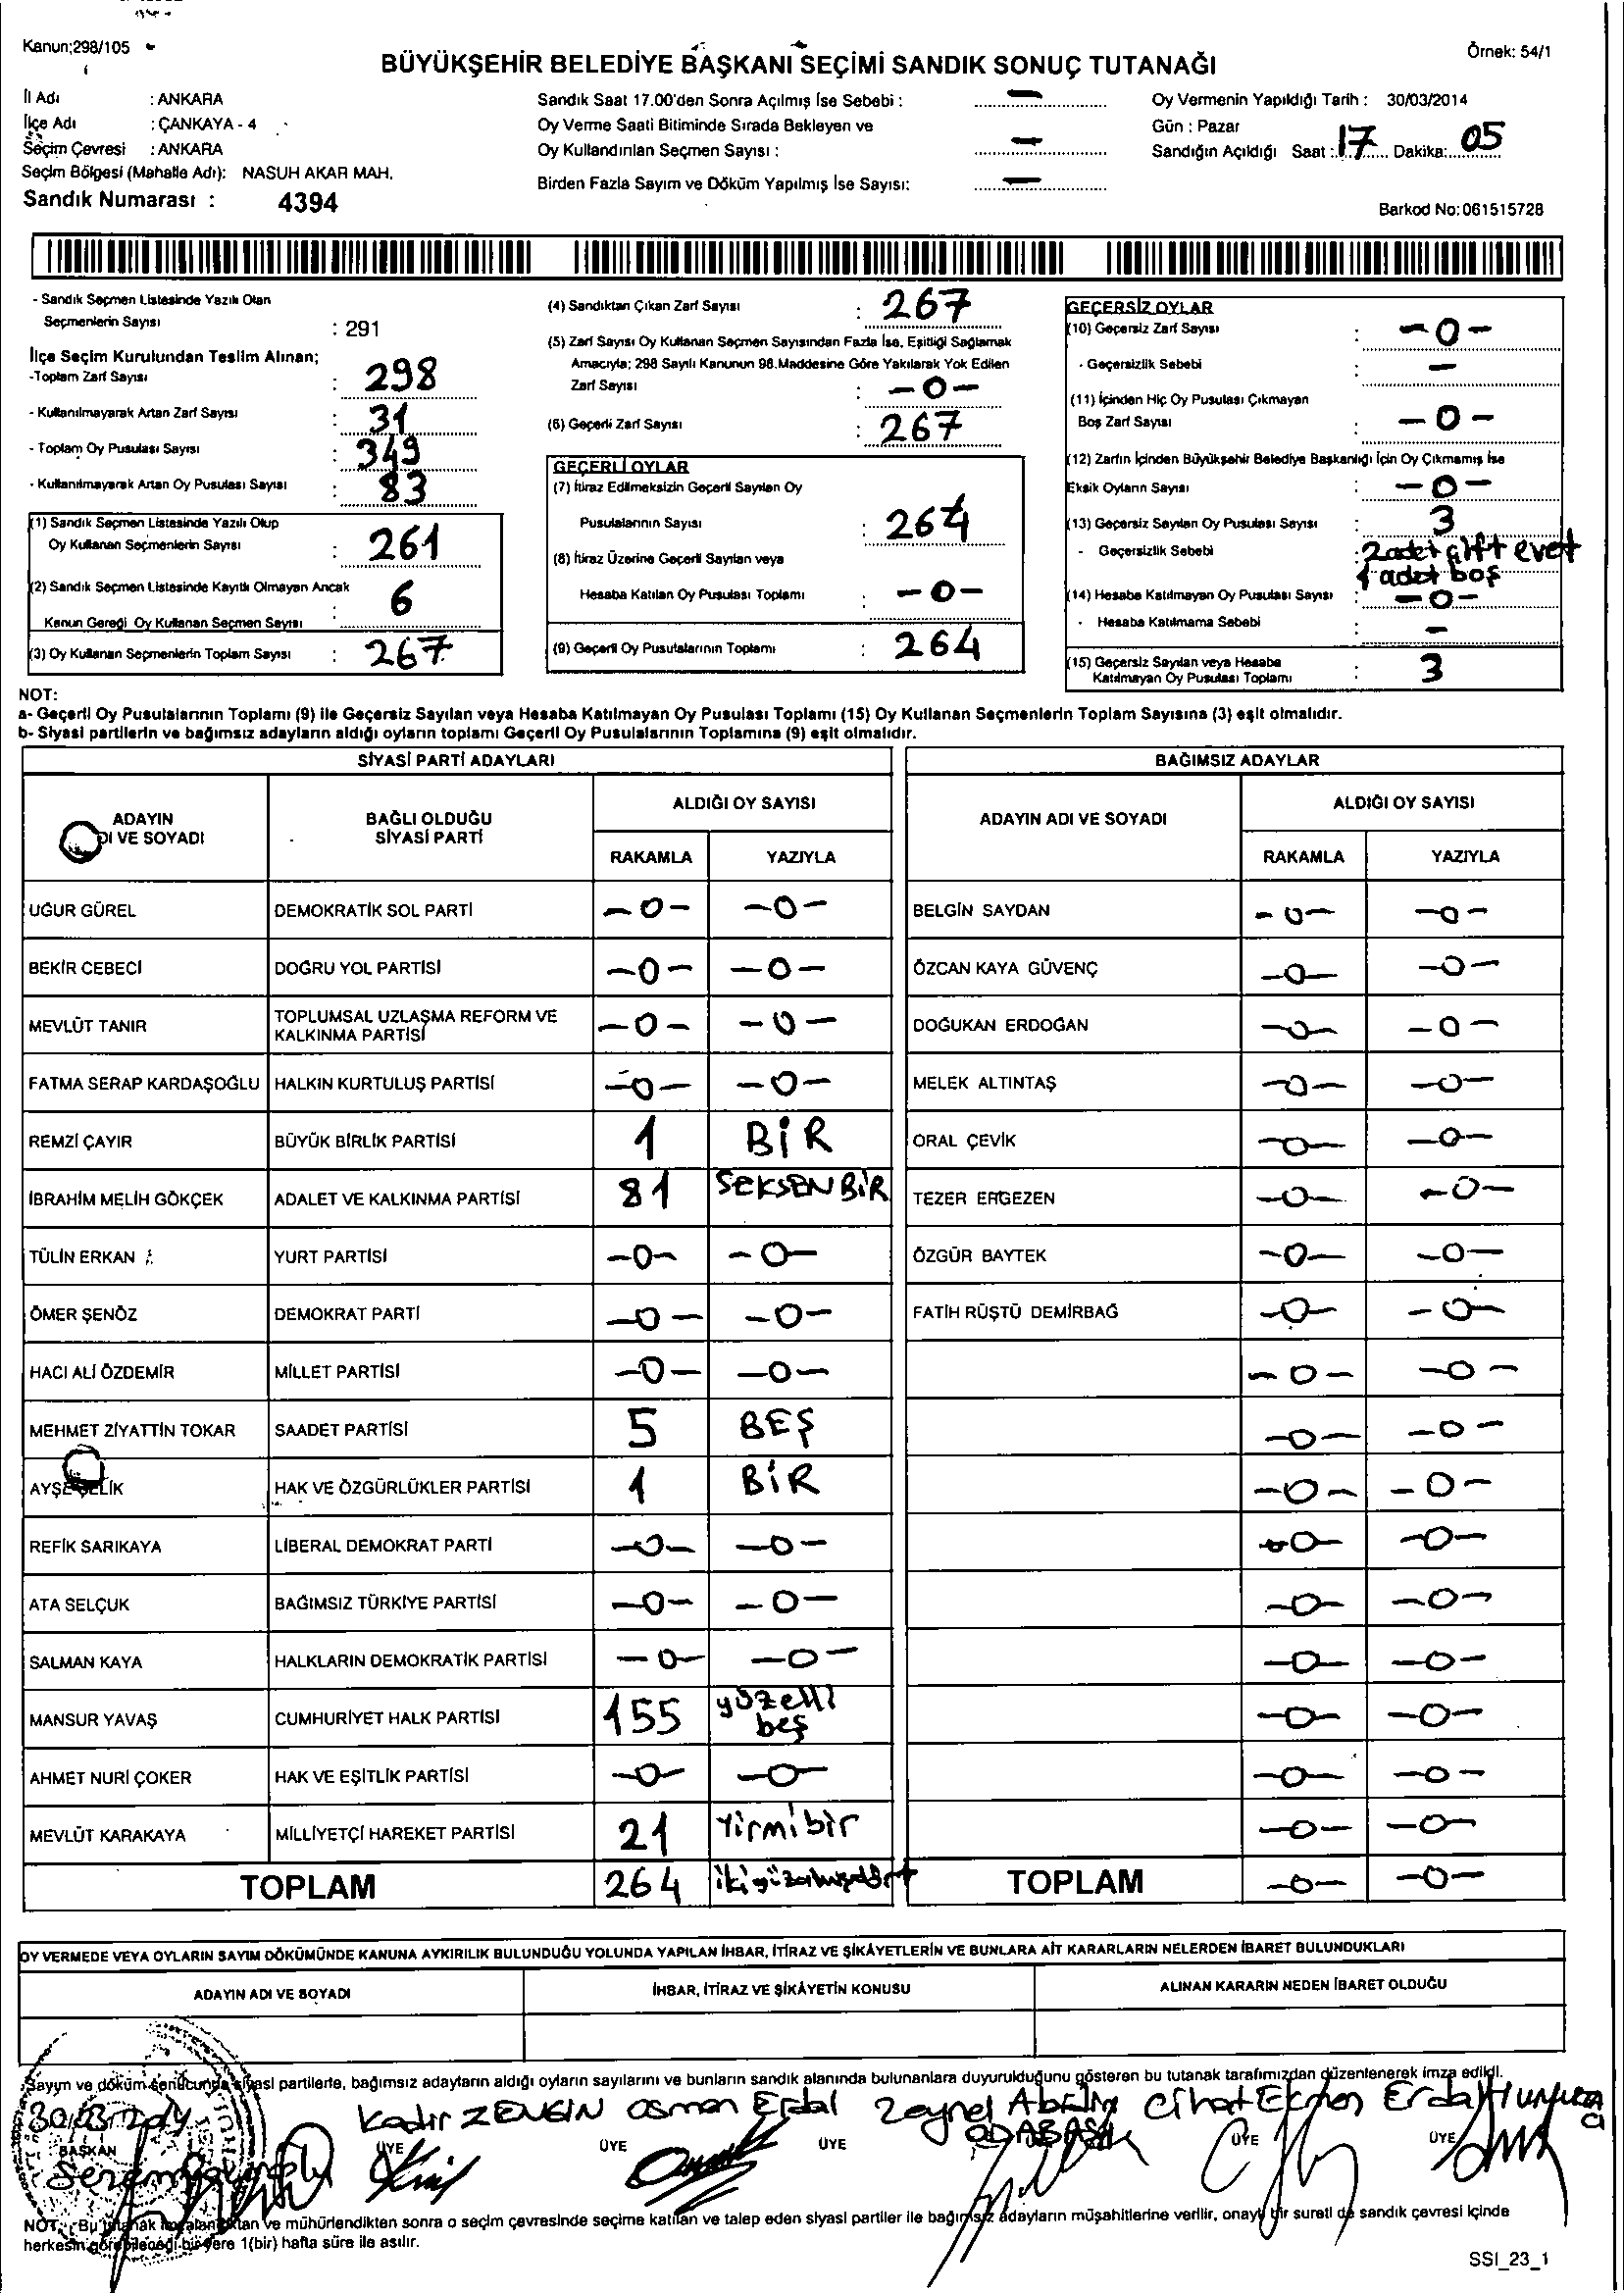 Kanun;298/105
Örnek: 54/1
BÜYÜKŞEHİR BELEDİYE BAŞKANI SEÇİMİ SANDIK SONUÇ TUTANAĞI
İl Adı : ANKARA
İlçe Adı : ÇANKAYA - 4
Seçim Çevresi : ANKARA
Seçim Bölgesi (Mahalle Adı): NASUH AKAR MAH.
Sandık Numarası : 4394
Sandık Saat 17.00'den Sonra Açılmış İse Sebebi : —
Oy Verme Saati Bitiminde Sırada Bekleyen ve
Oy Kullandırılan Seçmen Sayısı : —
Birden Fazla Sayım ve Döküm Yapılmış İse Sayısı: —
Oy Vermenin Yapıldığı Tarih : 30/03/2014
Gün : Pazar
Sandığın Açıldığı Saat : 17 Dakika: 05
Barkod No: 061515728
- Sandık Seçmen Listesinde Yazılı Olan
Seçmenlerin Sayısı : 291
İlçe Seçim Kurulundan Teslim Alınan;
-Toplam Zarf Sayısı : 298
- Kullanılmayarak Artan Zarf Sayısı : 31
- Toplam Oy Pusulası Sayısı : 349
- Kullanılmayarak Artan Oy Pusulası Sayısı : 83
(1) Sandık Seçmen Listesinde Yazılı Olup
Oy Kullanan Seçmenlerin Sayısı : 261
(2) Sandık Seçmen Listesinde Kayıtlı Olmayan Ancak
Kanun Gereği Oy Kullanan Seçmen Sayısı : 6
(3) Oy Kullanan Seçmenlerin Toplam Sayısı : 267
(4) Sandıktan Çıkan Zarf Sayısı : 267
(5) Zarf Sayısı Oy Kullanan Seçmen Sayısından Fazla İse, Eşitliği Sağlamak
Amacıyla; 298 Sayılı Kanunun 98.Maddesine Göre Yakılarak Yok Edilen
Zarf Sayısı : -0-
(6) Geçerli Zarf Sayısı : 267
GEÇERLİ OYLAR
(7) İtiraz Edilmeksizin Geçerli Sayılan Oy
Pusulalarının Sayısı : 264
(8) İtiraz Üzerine Geçerli Sayılan veya
Hesaba Katılan Oy Pusulası Toplamı : -0-
(9) Geçerli Oy Pusulalarının Toplamı : 264
GEÇERSİZ OYLAR
(10) Geçersiz Zarf Sayısı : -0-
- Geçersizlik Sebebi : —
(11) İçinden Hiç Oy Pusulası Çıkmayan
Boş Zarf Sayısı : -0-
(12) Zarfın İçinden Büyükşehir Belediye Başkanlığı İçin Oy Çıkmamış İse
Eksik Oyların Sayısı : -0-
(13) Geçersiz Sayılan Oy Pusulası Sayısı : 3
- Geçersizlik Sebebi : 2 adet çift evet
1 adet boş
(14) Hesaba Katılmayan Oy Pusulası Sayısı : -0-
- Hesaba Katılmama Sebebi : -
(15) Geçersiz Sayılan veya Hesaba
Katılmayan Oy Pusulası Toplamı : 3
NOT:
a- Geçerli Oy Pusulalarının Toplamı (9) ile Geçersiz Sayılan veya Hesaba Katılmayan Oy Pusulası Toplamı (15) Oy Kullanan Seçmenlerin Toplam Sayısına (3) eşit olmalıdır.
b- Siyasi partilerin ve bağımsız adayların aldığı oyların toplamı Geçerli Oy Pusulalarının Toplamına (9) eşit olmalıdır.
SİYASİ PARTİ ADAYLARI
ADAYIN
DI VE SOYADI
BAĞLI OLDUĞU
SİYASİ PARTİ
ALDIĞI OY SAYISI
RAKAMLA YAZIYLA
UĞUR GÜREL DEMOKRATİK SOL PARTİ -0- -0-
BEKİR CEBECİ DOĞRU YOL PARTİSİ -0- -0-
MEVLÜT TANIR TOPLUMSAL UZLAŞMA REFORM VE
KALKINMA PARTİSİ -0- -0-
FATMA SERAP KARDAŞOĞLU HALKIN KURTULUŞ PARTİSİ -0- -0-
REMZİ ÇAYIR BÜYÜK BİRLİK PARTİSİ 1 BİR
İBRAHİM MELİH GÖKÇEK ADALET VE KALKINMA PARTİSİ 81 SEKSEN BİR
TÜLİN ERKAN YURT PARTİSİ -0- -0-
ÖMER ŞENÖZ DEMOKRAT PARTİ -0- -0-
HACI ALİ ÖZDEMİR MİLLET PARTİSİ -0- -0-
MEHMET ZİYATTİN TOKAR SAADET PARTİSİ 5 BEŞ
AYŞE ÇELİK HAK VE ÖZGÜRLÜKLER PARTİSİ 1 BİR
REFİK SARIKAYA LİBERAL DEMOKRAT PARTİ -0- -0-
ATA SELÇUK BAĞIMSIZ TÜRKİYE PARTİSİ -0- -0-
SALMAN KAYA HALKLARIN DEMOKRATİK PARTİSİ -0- -0-
MANSUR YAVAŞ CUMHURİYET HALK PARTİSİ 155 yüzelli
beş
AHMET NURİ ÇOKER HAK VE EŞİTLİK PARTİSİ -0- -0-
MEVLÜT KARAKAYA MİLLİYETÇİ HAREKET PARTİSİ 21 Yirmibir
TOPLAM 264 ikiyüzaltmışdört
BAĞIMSIZ ADAYLAR
ADAYIN ADI VE SOYADI
ALDIĞI OY SAYISI
RAKAMLA YAZIYLA
BELGİN SAYDAN -0- -0-
ÖZCAN KAYA GÜVENÇ -0- -0-
DOĞUKAN ERDOĞAN -0- -0-
MELEK ALTINTAŞ -0- -0-
ORAL ÇEVİK -0- -0-
TEZER ERGEZEN -0- -0-
ÖZGÜR BAYTEK -0- -0-
FATİH RÜŞTÜ DEMİRBAĞ -0- -0-
-0- -0-
-0- -0-
-0- -0-
-0- -0-
-0- -0-
-0- -0-
-0- -0-
-0- -0-
-0- -0-
TOPLAM -0- -0-
OY VERMEDE VEYA OYLARIN SAYIM DÖKÜMÜNDE KANUNA AYKIRILIK BULUNDUĞU YOLUNDA YAPILAN İHBAR, İTİRAZ VE ŞİKÂYETLERİN VE BUNLARA AİT KARARLARIN NELERDEN İBARET BULUNDUKLARI
ADAYIN ADI VE SOYADI İHBAR, İTİRAZ VE ŞİKÂYETİN KONUSU ALINAN KARARIN NEDEN İBARET OLDUĞU
Sayım ve döküm sonucunda siyasi partilerle, bağımsız adayların aldığı oyların sayılarını ve bunların sandık alanında bulunanlara duyurulduğunu gösteren bu tutanak tarafımızdan düzenlenerek imza edildi.
30/03/2014 Kadir ZENGİN Osman Erdal Zeynel Cihat Erdal
BAŞKAN ÜYE ÜYE ÜYE ÜYE ÜYE
NOT: Bu tutanak imzalandıktan ve mühürlendikten sonra o seçim çevresinde seçime katılan ve talep eden siyasi partiler ile bağımsız adayların müşahitlerine verilir, onaylı bir sureti de sandık çevresi içinde
herkesin görebileceği bir yere 1(bir) hafta süre ile asılır.
SSI_23_1